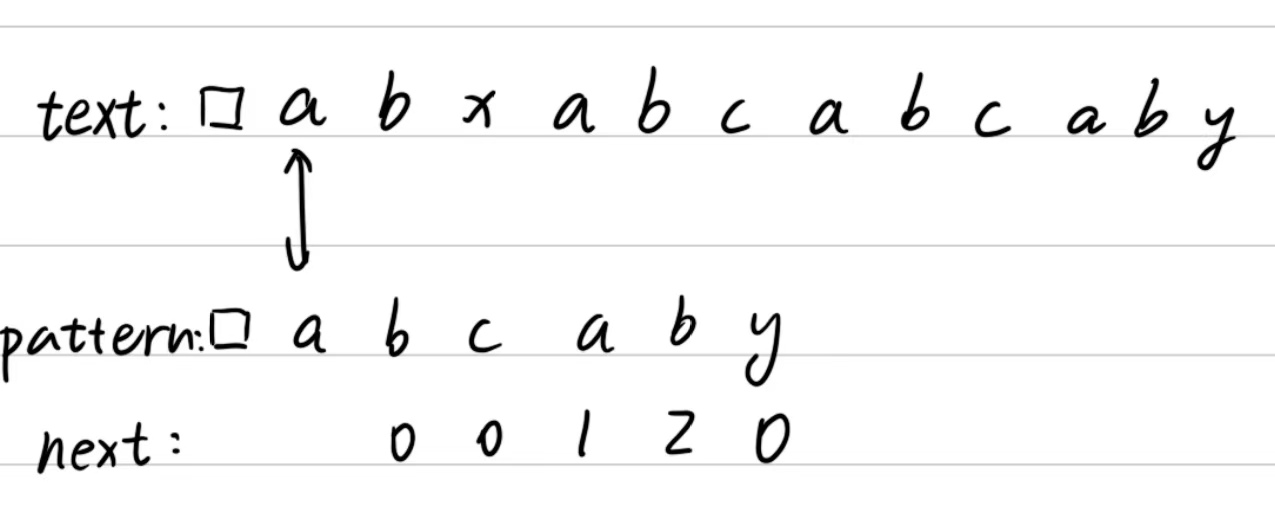 text: □ a b x a b c a b c a b y
pattern: □ a b c a b y
next: 0 0 1 2 0